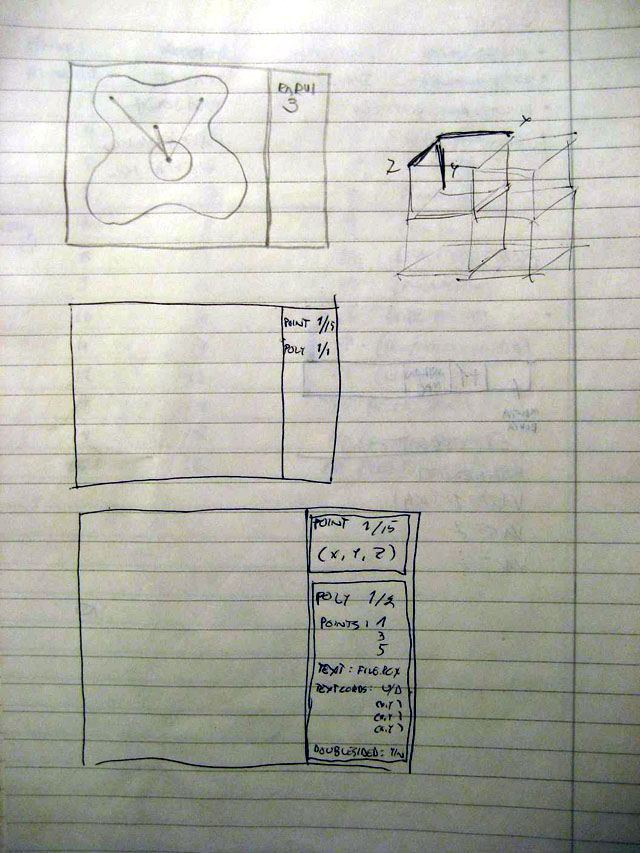 RADIUI
3
X
Z
Y
POINT 1/15
POLY 1/1
POINT 1/15
(X, Y, Z)
POLY 1/2
POINTS: 1
3
5
TEXT: FILE.PCX
TEXTCORDS: U/D
(X,Y)
(X,Y)
(X,Y)
DOUBLESIDED: Y/N